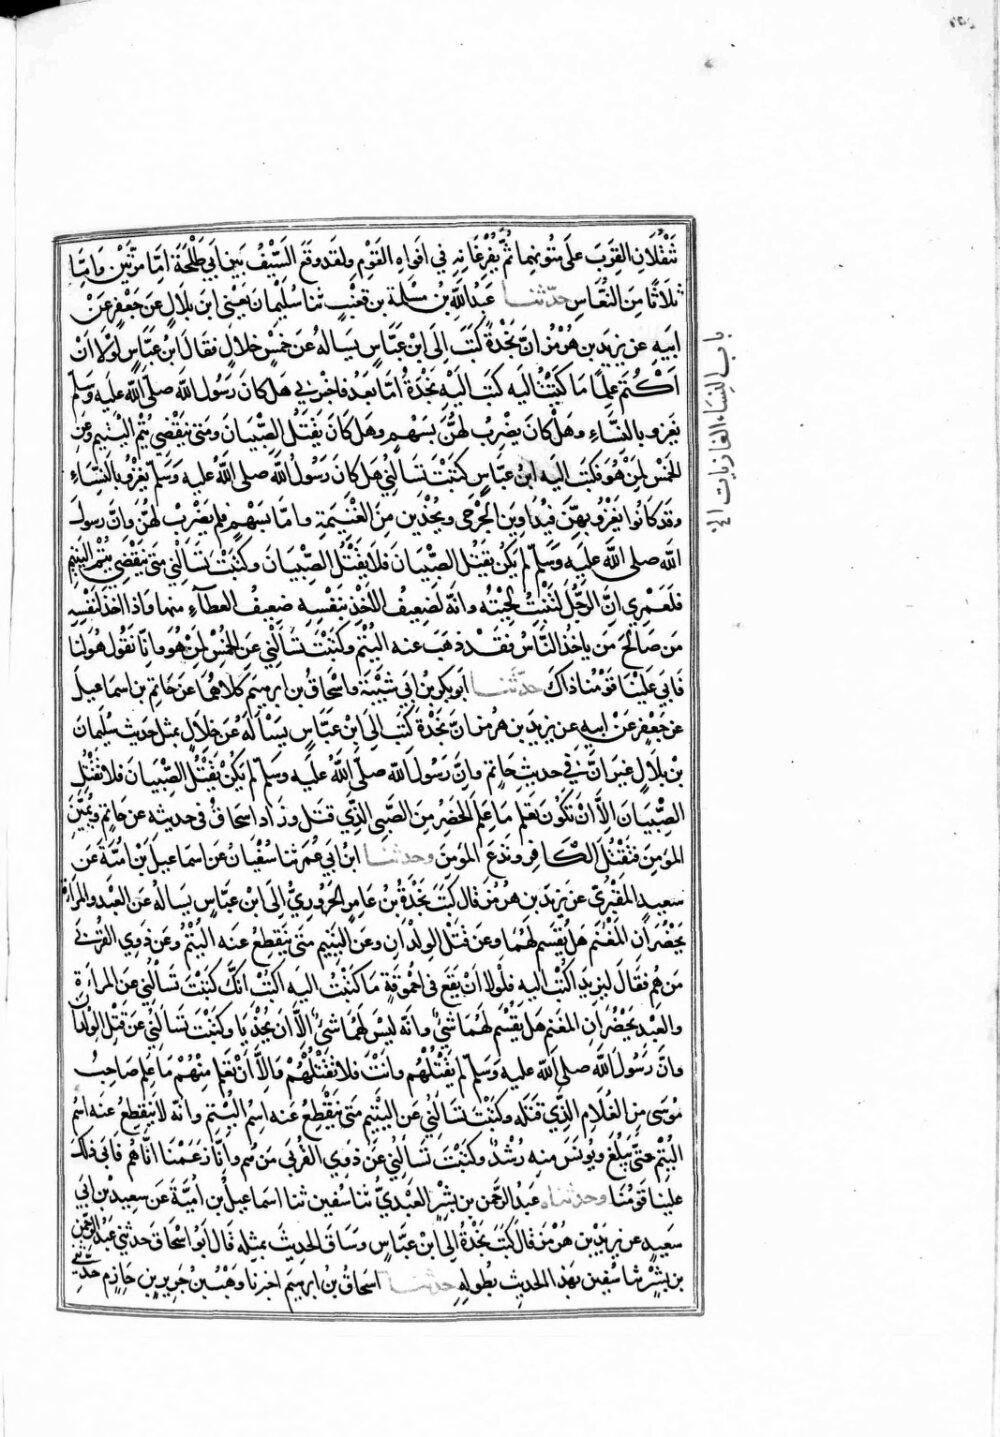 تَنْقُلَانِ القِرَبَ عَلَى مُتُونِهِمَا ثُمَّ تُفْرِغَانِهِ فِي افوَاهِ القَوْمِ ولقد وقَعَ السَّيْفُ بَيْنَ ابي طَلْحَةَ اِمَّا مَرَّتَيْنِ وَاِمَّا
ثلَاثًا مِنَ النُّعَاسِ حدّثنا عَبدُ اللَّهِ بْنُ مَسْلَمة بن قعنَبٍ ثنا سُلَيْمان يَعْنِى ابن بلَالٍ عَن جَعْفَرٍ عَنْ
ابيهِ عن يزيد بن هُرْمُز انَّ نَجْدَةَ كَتَبَ الَى ابْن عَبَّاسٍ يَسالهُ عَن خَمْسِ خلالٍ فقال ابْن عَبَّاسٍ لَوْلَا اَنْ
اَكْتُمَ عِلمًا مَا كَتَبْتُ اليه كتب اليهِ نَجْدَةُ امَّا بَعد فاخبرني هَل كانَ رَسُولُ اللَّه صلى اللَّه عليه وَسَلّم
يَغزو بالنّساءِ وهل كَانَ يضرِبُ لهُنَّ بسَهمٍ وهَل كانَ يَقتُلُ الصِّبيَانَ ومَتى يَنْقَضِي يُتْمُ اليَتيمِ وعَنِ
الخمْسِ لِمَنْ هُوَ فكتبَ اليهِ ابنُ عبَّاسٍ كتَبْتَ تَسْالُني هَل كان رَسُولُ اللَّه صلى اللَّهُ عليه وَسَلّم يَغْزُو بالنّسَاءِ
وقد كانُوا يَغْزُو بهنَّ فيُدَاوِينَ الجَرْحَى ويُحْذَيْنَ مِنَ الغَنِيمَةِ وامّا بسَهْمٍ فلم يَضْرِبْ لهُنَّ وانَّ رسولَ
اللَّه صلى اللَّه عليه وَسَلّم لم يَكُن يَقتُل الصّبْيانَ فلا تَقْتُل الصِّبْيَانَ وكتَبْتَ تَسْالُني مَتى يَنْقَضِي يُتْمُ اليَتيم
فلَعَمْرِي انَّ الرَّجُلَ لَتَنْبُتُ لِحْيَتُه وانّهُ لضَعِيفُ الاخْذِ لنَفسِهِ ضعِيفُ العَطآءِ منها واذا اخَذَ لنَفْسِهِ
مِن صَالحِ مَن ياخُذُ النَّاسُ فقَد ذهَبَ عنه اليُتْم وكتَبْتَ تَسْالُني عَنِ الخُمْسِ لِمَنْ هُوَ وانّا نَقُول هُوَ لنا
فَابَى عَلَيْنَا قَوْمُنا ذاكَ حدّثنا ابو بكرِ بْن ابي شَيْبَةَ واسْحَاقُ بن ابرهيم كلاهُمَا عَن حَاتِم بن اسماعيل
عن جَعْفَرٍ عَنْ ابيهِ عن يزيد بن هرمز انَّ نَجْدَةَ كَتَبَ الى ابْن عَبَّاسٍ يَسْالُه عَن خلَالٍ بمثل حَديث سُليمان
بن بلالٍ غيرَ انَّ في حديثِ حاتِمٍ وانَّ رَسُولَ اللَّه صلى اللَّهُ عليه وَسَلّم لم يَكُنْ يَقْتُل الصِّبْيَانَ فلا تَقْتُل
الصّبْيَانَ الَّا انْ تَكُونَ تَعْلمُ مَا عَلِمَ الخضِرُ مِنَ الصَّبي الَّذِي قتَل وزَادَ اسحَاقُ فى حَديثِه عن حَاتِمٍ وتُمَيِّزَ
المؤمِنَ فتَقْتُلَ الكَافِرَ وتَدَعَ المؤمِنَ وحدثنا ابْن ابي عُمَر ثنا سُفْيَانُ عَن اسمَاعيلَ بْن امَيَّةَ عَن
سَعيدٍ المَقْبُرِيّ عن يزيدَ بن هُرْمُزَ قال كتَبَ نَجْدَةُ بْنُ عامِرٍ الحَرُورِيُّ الى ابْن عبَّاسٍ يَسالُهُ عن العَبْدِ والمَرَاةِ
يَحْضُرَانِ المَغْنَمَ هَل يُقْسَم لَهُمَا وعَن قَتْلِ الوِلْدَانِ وعَنِ اليَتيمِ مَتَى يَنْقَطِعُ عَنه اليُتْمُ وعَن ذَوِي القُرْبَى
مَن هُم فقَال ليزيدَ اكتُبْ اليه فلَولَا انْ يَقَعَ فى اُحْمُوقَةٍ مَا كتَبْتُ اليهِ اكتُبْ انّكَ كتَبْتَ تَسْالُني عن المراةِ
والعَبْدِ يَحْضُرَانِ المغنَم هَل يُقْسَم لَهُمَا شيْءٌ وانّه لَيْسَ لهُمَا شيْءٌ الّا ان يُحْذَيَا وكتَبْتَ تَسْالُني عَن قَتْلِ الوِلْدَانِ
وانّ رَسُولَ اللَّه صلى اللَّه عليه وَسَلّم لم يَقْتُلْهُم وانتَ فلا تَقتُلْهُمْ الّا انْ تَعْلم مِنْهُمْ مَا عَلِمَ صَاحِبُ
مُوسَى مِن الغُلَامِ الَّذِي قَتَلَه وكتَبْتَ تَسالُني عَنِ اليَتيمِ مَتى يَنْقَطِعُ عَنه اسْمُ اليُتْمِ وانّه لا يَنقَطِعُ عَنه اسْمُ
اليُتْمِ حتَّى يَبْلُغَ ويُونَسَ مِنه رُشْدٌ وكتَبْتَ تَسالُني عَن ذوِي القُربى مَن هُم وانّا زعَمْنَا انَّا هُم فَابى ذلكَ
علينا قَومُنَا وحدثناه عبدُ الرّحمن بن بشرٍ العَبْدِيُّ ثنا سفين ثنا اسماعيلُ بن اميَّةَ عَن سعيد بن ابي
سَعيدٍ عن يزيدَ بْن هُرْمُزَ قال كتَبَ نَجْدَةُ الى ابْن عبَّاسٍ وسَاقَ الحديثَ بمثلِه قال ابو اسْحَاق حدثني عبد الرحمن
بن بشرٍ ثنا سفين بهذا الحديث بطولهِ حدثنا اسحَاقُ بن ابرهيم اخبرنا وَهْبُ بْن جَرير بن حَازِمٍ حدثني
باب النساء الغازيات